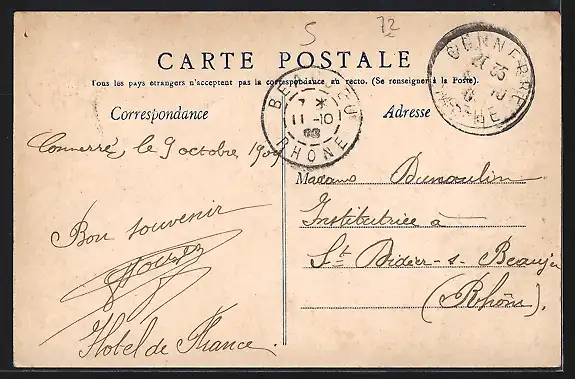 5
72
CARTE POSTALE
Tous les pays étrangers n'acceptent pas la correspondance au recto. (Se renseigner à la Poste).
Correspondance
Adresse
RHONE
11 -10
Connerré, le 9 octobre
Madame Dumoulin
Institutrice à
St Didier-s-Beaujeu
(Rhône).
Bon souvenir
Hotel de France.